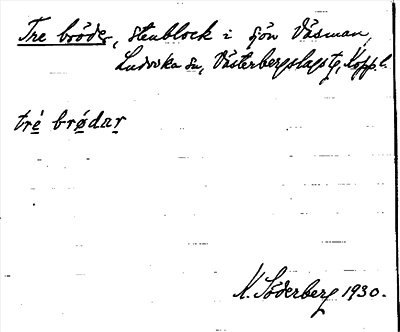 Tre bröder, stenblock i sjön Väsman,
Ludvika sn, Västerbergslags tg, Kopp. l.
tré brødar
K. Söderberg 1930.